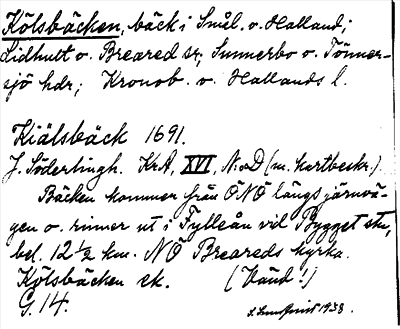 Kölsbäcken, bäck i Smål. o. Halland;
Lidhult o. Breared sr, Sunnerbo o. Tönner-
sjö hdr; Kronob. o. Hallands l.
Kiälsbäck 1691.
J. Söderlingh. KrA, XVI, N:o D (m. kartbeskr.).
Bäcken kommer från ÖNÖ längs järnvä-
gen o. rinner ut i Fylleån vid Bygget stn,
bel. 12 ½ km. NÖ Breareds kyrka.
Kölsbäcken ek. (Vänd!)
G. 14.
Lundqvist 1938.